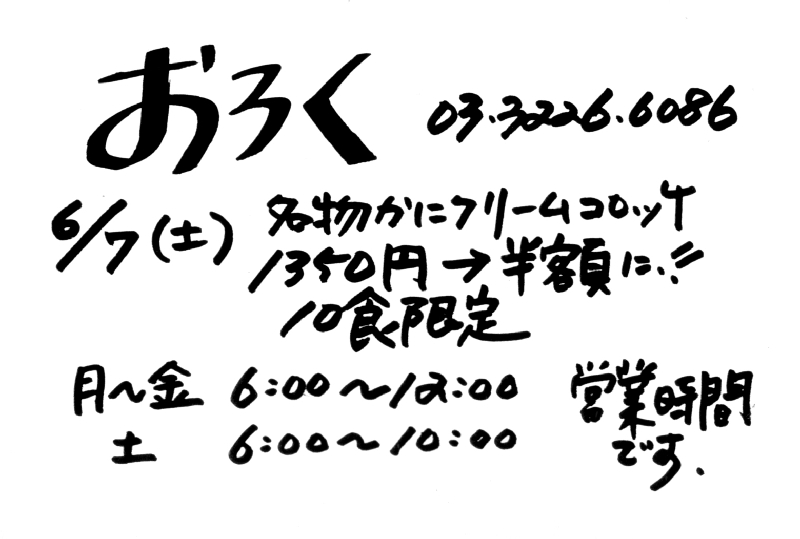 おろく
03.3226.6086
6/7(土) 名物かにクリームコロッケ
1350円→半額に!!
10食限定
月~金 6:00~12:00
土 6:00~10:00
営業時間
です.